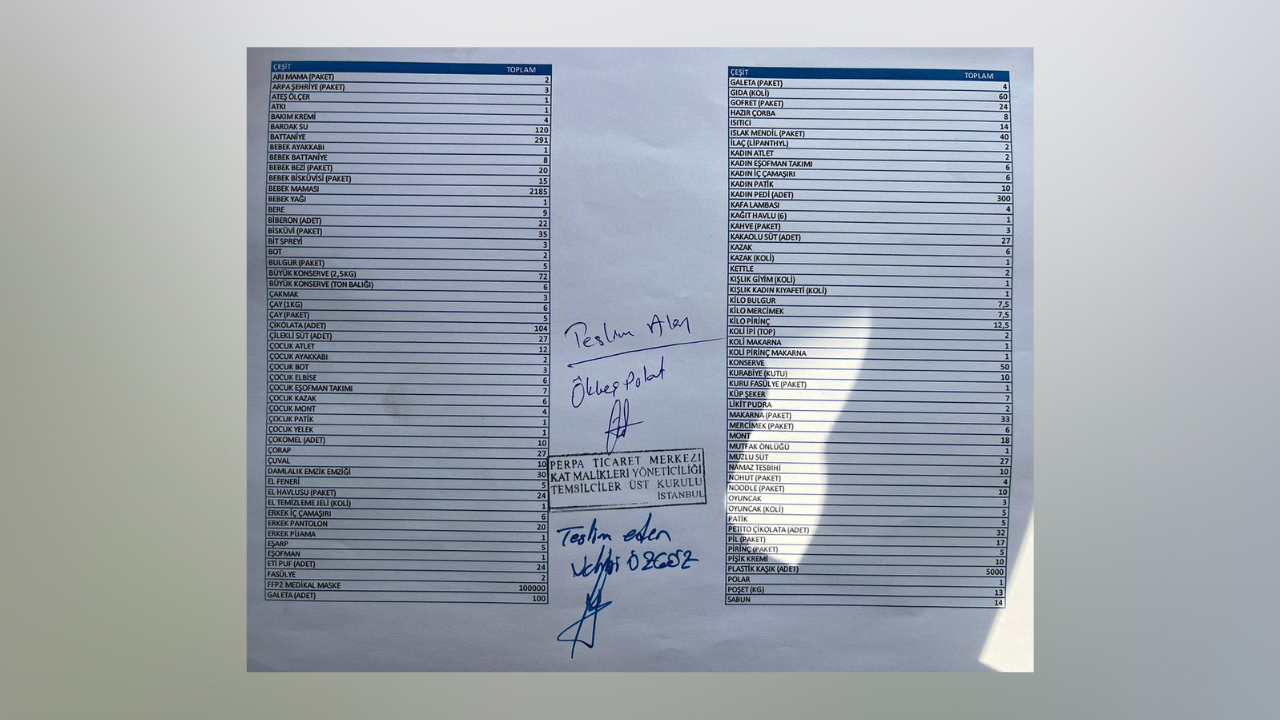 ÇEŞİT TOPLAM
ARI MAMA (PAKET) 2
ARPA ŞEHRİYE (PAKET) 3
ATEŞ ÖLÇER 1
ATKI 1
BAKIM KREMİ 4
BARDAK SU 120
BATTANİYE 291
BEBEK AYAKKABI 1
BEBEK BATTANİYE 8
BEBEK BEZİ (PAKET) 20
BEBEK BİSKÜVİSİ (PAKET) 15
BEBEK MAMASI 2185
BEBEK YAĞI 1
BERE 9
BİBERON (ADET) 22
BİSKÜVİ (PAKET) 35
BİT SPREYİ 3
BOT 2
BULGUR (PAKET) 5
BÜYÜK KONSERVE (2,5KG) 72
BÜYÜK KONSERVE (TON BALIĞI) 6
ÇAKMAK 3
ÇAY (1KG) 6
ÇAY (PAKET) 5
ÇİKOLATA (ADET) 104
ÇİLEKLİ SÜT (ADET) 27
ÇOCUK ATLET 12
ÇOCUK AYAKKABI 2
ÇOCUK BOT 3
ÇOCUK ELBİSE 6
ÇOCUK EŞOFMAN TAKIMI 7
ÇOCUK KAZAK 6
ÇOCUK MONT 4
ÇOCUK PATİK 1
ÇOCUK YELEK 1
ÇOKOMEL (ADET) 10
ÇORAP 27
ÇUVAL 10
DAMLALIK EMZİK EMZİĞİ 30
EL FENERİ 5
EL HAVLUSU (PAKET) 24
EL TEMİZLEME JELİ (KOLİ) 1
ERKEK İÇ ÇAMAŞIRI 6
ERKEK PANTOLON 20
ERKEK PİJAMA 1
EŞARP 5
EŞOFMAN 1
ETİ PUF (ADET) 24
FASÜLYE 2
FFP2 MEDİKAL MASKE 100000
GALETA (ADET) 100
Teslim Alan
Ökkeş Polat
PERPA TİCARET MERKEZİ
KAT MALİKLERİ YÖNETİCİLİĞİ
TEMSİLCİLER ÜST KURULU
İSTANBUL
Teslim eden
Vehbi ÖZGÖZ
ÇEŞİT TOPLAM
GALETA (PAKET) 4
GIDA (KOLİ) 60
GOFRET (PAKET) 24
HAZIR ÇORBA 8
ISITICI 14
ISLAK MENDİL (PAKET) 40
İLAÇ (LİPANTHYL) 2
KADIN ATLET 2
KADIN EŞOFMAN TAKIMI 6
KADIN İÇ ÇAMAŞIRI 6
KADIN PATİK 10
KADIN PEDİ (ADET) 300
KAFA LAMBASI 4
KAĞIT HAVLU (6) 1
KAHVE (PAKET) 3
KAKAOLU SÜT (ADET) 27
KAZAK 6
KAZAK (KOLİ) 1
KETTLE 2
KIŞLIK GİYİM (KOLİ) 1
KIŞLIK KADIN KIYAFETİ (KOLİ) 1
KİLO BULGUR 7,5
KİLO MERCİMEK 7,5
KİLO PİRİNÇ 12,5
KOLİ İPİ (TOP) 2
KOLİ MAKARNA 1
KOLİ PİRİNÇ MAKARNA 1
KONSERVE 50
KURABİYE (KUTU) 10
KURU FASÜLYE (PAKET) 1
KÜP ŞEKER 7
LİKİT PUDRA 2
MAKARNA (PAKET) 33
MERCİMEK (PAKET) 6
MONT 18
MUTFAK ÖNLÜĞÜ 1
MUZLU SÜT 27
NAMAZ TESBİHİ 10
NOHUT (PAKET) 4
NOODLE (PAKET) 10
OYUNCAK 3
OYUNCAK (KOLİ) 5
PATİK 5
PETİTO ÇİKOLATA (ADET) 32
PİL (PAKET) 17
PİRİNÇ (PAKET) 5
PİŞİK KREMİ 10
PLASTİK KAŞIK (ADET) 5000
POLAR 1
POŞET (KG) 13
SABUN 14